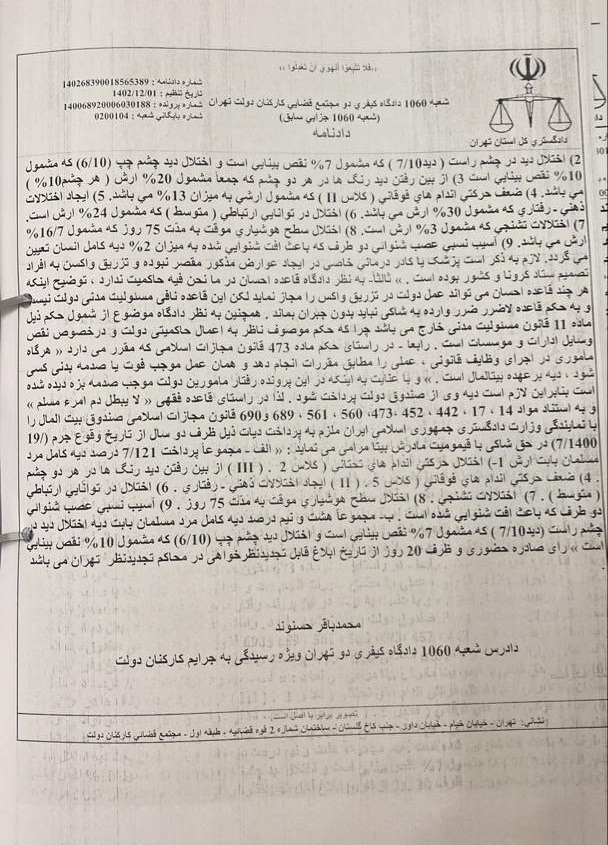 ،،فلا تتبعوا الهوي ان تعدلوا ،،
شماره دادنامه : 140268390018565389
تاریخ تنظیم : 1402/12/01
شماره پرونده : 140068920006030188
شماره بایگانی شعبه : 0200104
شعبه 1060 دادگاه کیفری دو مجتمع قضایی کارکنان دولت تهران
(شعبه 1060 جزایی سابق)
دادنامه
دادگستري کل استان تهران
2) اختلال ديد در چشم راست ( ديد7/10 ) که مشمول 7% نقص بينايي است و اختلال ديد چشم چپ (6/10) که مشمول
10% نقص بينايي است 3) از بين رفتن ديد رنگ ها در هر دو چشم که جمعاً مشمول 20% ارش ( هر چشم10% )
مي باشد. 4) ضعف حرکتي اندام هاي فوقاني ( کلاس II ) که مشمول ارشي به ميزان 13% مي باشد. 5) ايجاد اختلالات
ذهني - رفتاري که مشمول 30% ارش مي باشد. 6) اختلال در توانايي ارتباطي ( متوسط ) که مشمول 24% ارش است.
7) اختلالات تشنجي که مشمول 3% ارش است. 8) اختلال سطح هوشياري موقت به مدت 75 روز که مشمول 16/7%
ارش مي باشد. 9) آسيب نسبي عصب شنوائي دو طرف که باعث افت شنوايي شده به ميزان 2% ديه کامل انسان تعيين
مي گردد. لازم به ذکر است پزشک يا کادر درماني خاصي در ايجاد عوارض مذکور مقصر نبوده و تزريق واکسن به افراد
تصميم ستاد کرونا و کشور بوده است . » ثالثاً- به نظر دادگاه قاعده احسان در ما نحن فيه حاکميت ندارد ، توضيح اينکه
هر چند قاعده احسان مي تواند عمل دولت در تزريق واکس را مجاز نمايد لکن اين قاعده نافي مسئوليت مدني دولت نيست
و به حکم قاعده لاضرر ضرر وارده به شاکي نبايد بدون جبران بماند . همچنين به نظر دادگاه موضوع از شمول حکم ذيل
ماده 11 قانون مسئوليت مدني خارج مي باشد چرا که حکم موصوف ناظر به اعمال حاکميتي دولت و درخصوص نقص
وسايل ادارات و موسسات است . رابعا - در راستاي حکم ماده 473 قانون مجازات اسلامي که مقرر مي دارد « هرگاه
ماموري در اجراي وظايف قانوني ، عملي را مطابق مقررات انجام دهد و همان عمل موجب فوت يا صدمه بدني کسي
شود ، ديه برعهده بيتالمال است . » و با عنايت به اينکه در اين پرونده رفتار مامورين دولت موجب صدمه بزه ديده شده
است بنابراين لازم است ديه وي از صندوق دولت پرداخت شود . لذا در راستاي قاعده فقهي « لا يبطل دم امرء مسلم »
و به استناد مواد 14 ، 17 ، 442 ، 452 ،473 ، 560 ، 561 ، 689 و690 قانون مجازات اسلامي صندوق بيت المال را
با نمايندگي وزارت دادگستري جمهوري اسلامي ايران ملزم به پرداخت ديات ذيل ظرف دو سال از تاريخ وقوع جرم (19/
7/1400) در حق شاکي با قيموميت مادرش بيتا مرامي مي نمايد : « الف - مجموعاً پرداخت 7/121 درصد ديه کامل مرد
مسلمان بابت ارش 1- اختلال حرکتي اندام هاي تحتاني ( کلاس III ) . 2 . از بين رفتن ديد رنگ ها در هر دو چشم
. 4) ضعف حرکتي اندام هاي فوقاني ( کلاس II ) . 5 . ايجاد اختلالات ذهني - رفتاري . 6) اختلال در توانايي ارتباطي
(متوسط ) . 7) اختلالات تشنجي . 8) اختلال سطح هوشياري موقت به مدت 75 روز . 9) آسيب نسبي عصب شنوائي
دو طرف که باعث افت شنوايي شده است . ب- مجموعاً هشت و نيم درصد ديه کامل مرد مسلمان بابت ديه اختلال ديد در
چشم راست (ديد7/10 ) که مشمول 7% نقص بينايي است و اختلال ديد چشم چپ (6/10) که مشمول 10% نقص بينايي
است » راي صادره حضوري و ظرف 20 روز از تاريخ ابلاغ قابل تجديدنظرخواهي در محاکم تجديدنظر تهران مي باشد
محمدباقر حسنوند
دادرس شعبه 1060 دادگاه کيفري دو تهران ويژه رسيدگي به جرايم کارکنان دولت
تصوير برابر با اصل است.
نشاني: تهران - خيابان خيام - خيابان داور - جنب کاخ گلستان - ساختمان شماره 2 قوه قضائيه - طبقه اول - مجتمع قضائي کارکنان دولت